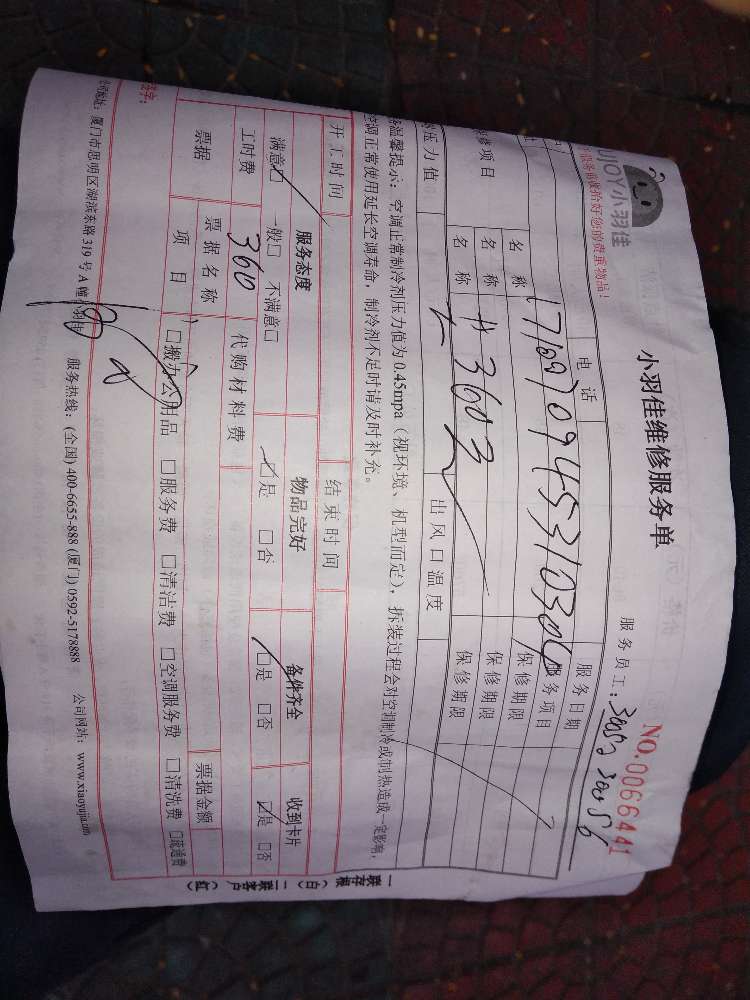 UJOY小羽佳
小羽佳维修服务单
NO.0066441
服务员工:
电话
服务日期
1710970945310306
服务项目
名称
保修期限
名称
保修期限
名称
保修期限
压力值
出风口温度
温馨提示:空调正常制冷剂压力值为0.45mpa(视环境、机型而定),拆装过程会对空调制冷或制热造成一定影响,
空调正常使用延长空调寿命,制冷剂不足时请及时补充。
开工时间
结束时间
服务态度
物品完好
备件齐全
收到卡片
满意□ 一般□ 不满意□
□是 □否
□是 □否
□是 □否
工时费
360
代购材料费
票据
票据名称
票据金额
项目
□搬办公用品 □服务费 □清洁费 □空调服务费 □清洗费 □疏通费
签字:
公司地址:厦门市思明区湖滨东路319号A幢小羽佳 服务热线:(全国)400-6655-888 (厦门)0592-5178888 公司网站:www.xiaoyujia.com
一联存根(白) 二联客户(红)